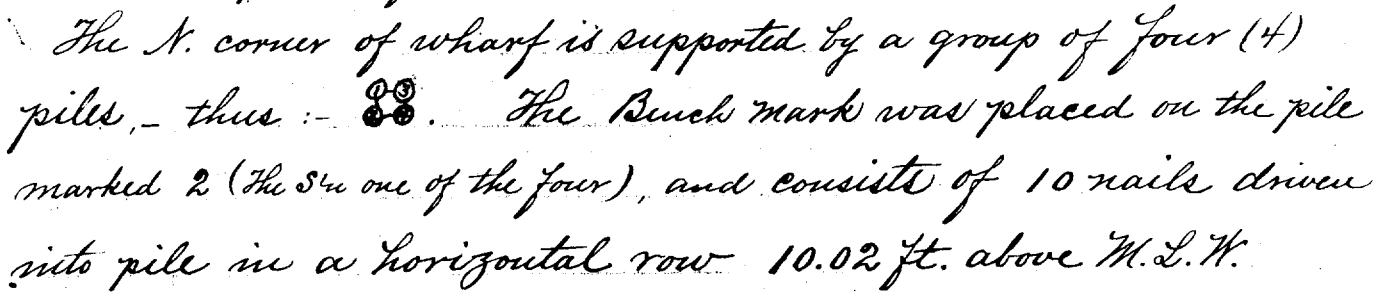 The N. corner of wharf is supported by a group of four (4)
piles, - thus :- 1 3 2 4. The Bench mark was placed on the pile
marked 2 (the S'n one of the four), and consists of 10 nails driven
into pile in a horizontal row 10.02 ft. above M.L.W.